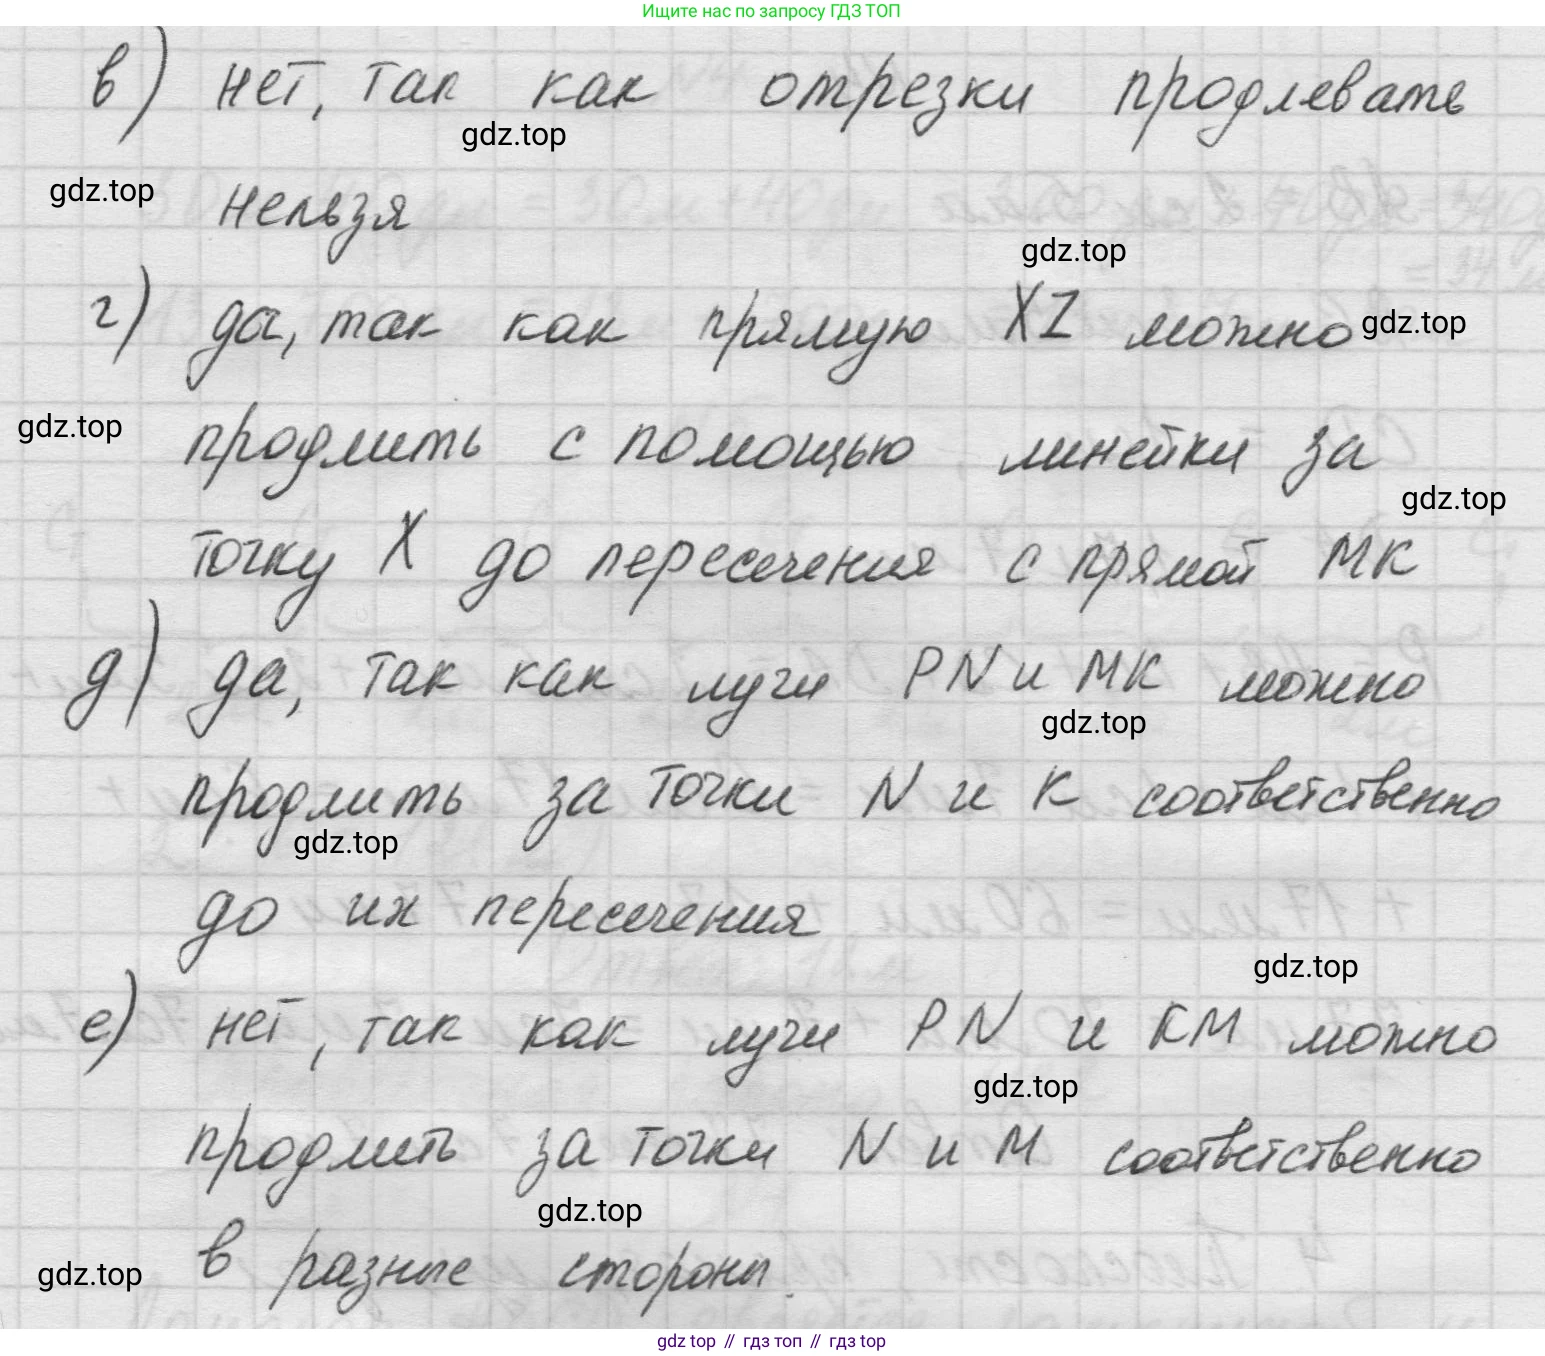 Ищите нас по запросу ГДЗ ТОП
в) нет, так как отрезки продлевать
gdz.top
gdz.top
нельзя
gdz.top
г) да, так как прямую XZ можно
gdz.top
gdz.top
продлить с помощью линейки за
gdz.top
точку X до пересечения с прямой МК
д) да, так как лучи PN и МК можно
gdz.top
продлить за точки N и К соответственно
gdz.top
до их пересечения
gdz.top
е) нет, так как лучи PN и КМ можно
gdz.top
продлить за точки N и М соответственно
gdz.top
в разные стороны.
gdz.top
gdz top // гдз топ // gdz top